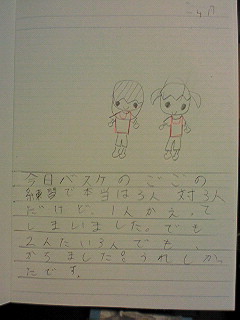 今日バスケのごごの
練習で本当は3人対3人
だけど、1人かえって
しまいました。でも
2人たい3人でも、
かちました。うれしかっ
たです。